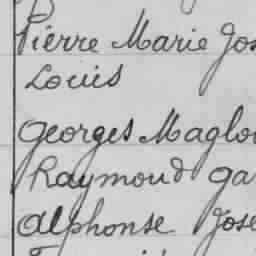 Pierre Marie Jos
Louis
Georges Maglo
Raymond Ga
Alphonse Jose